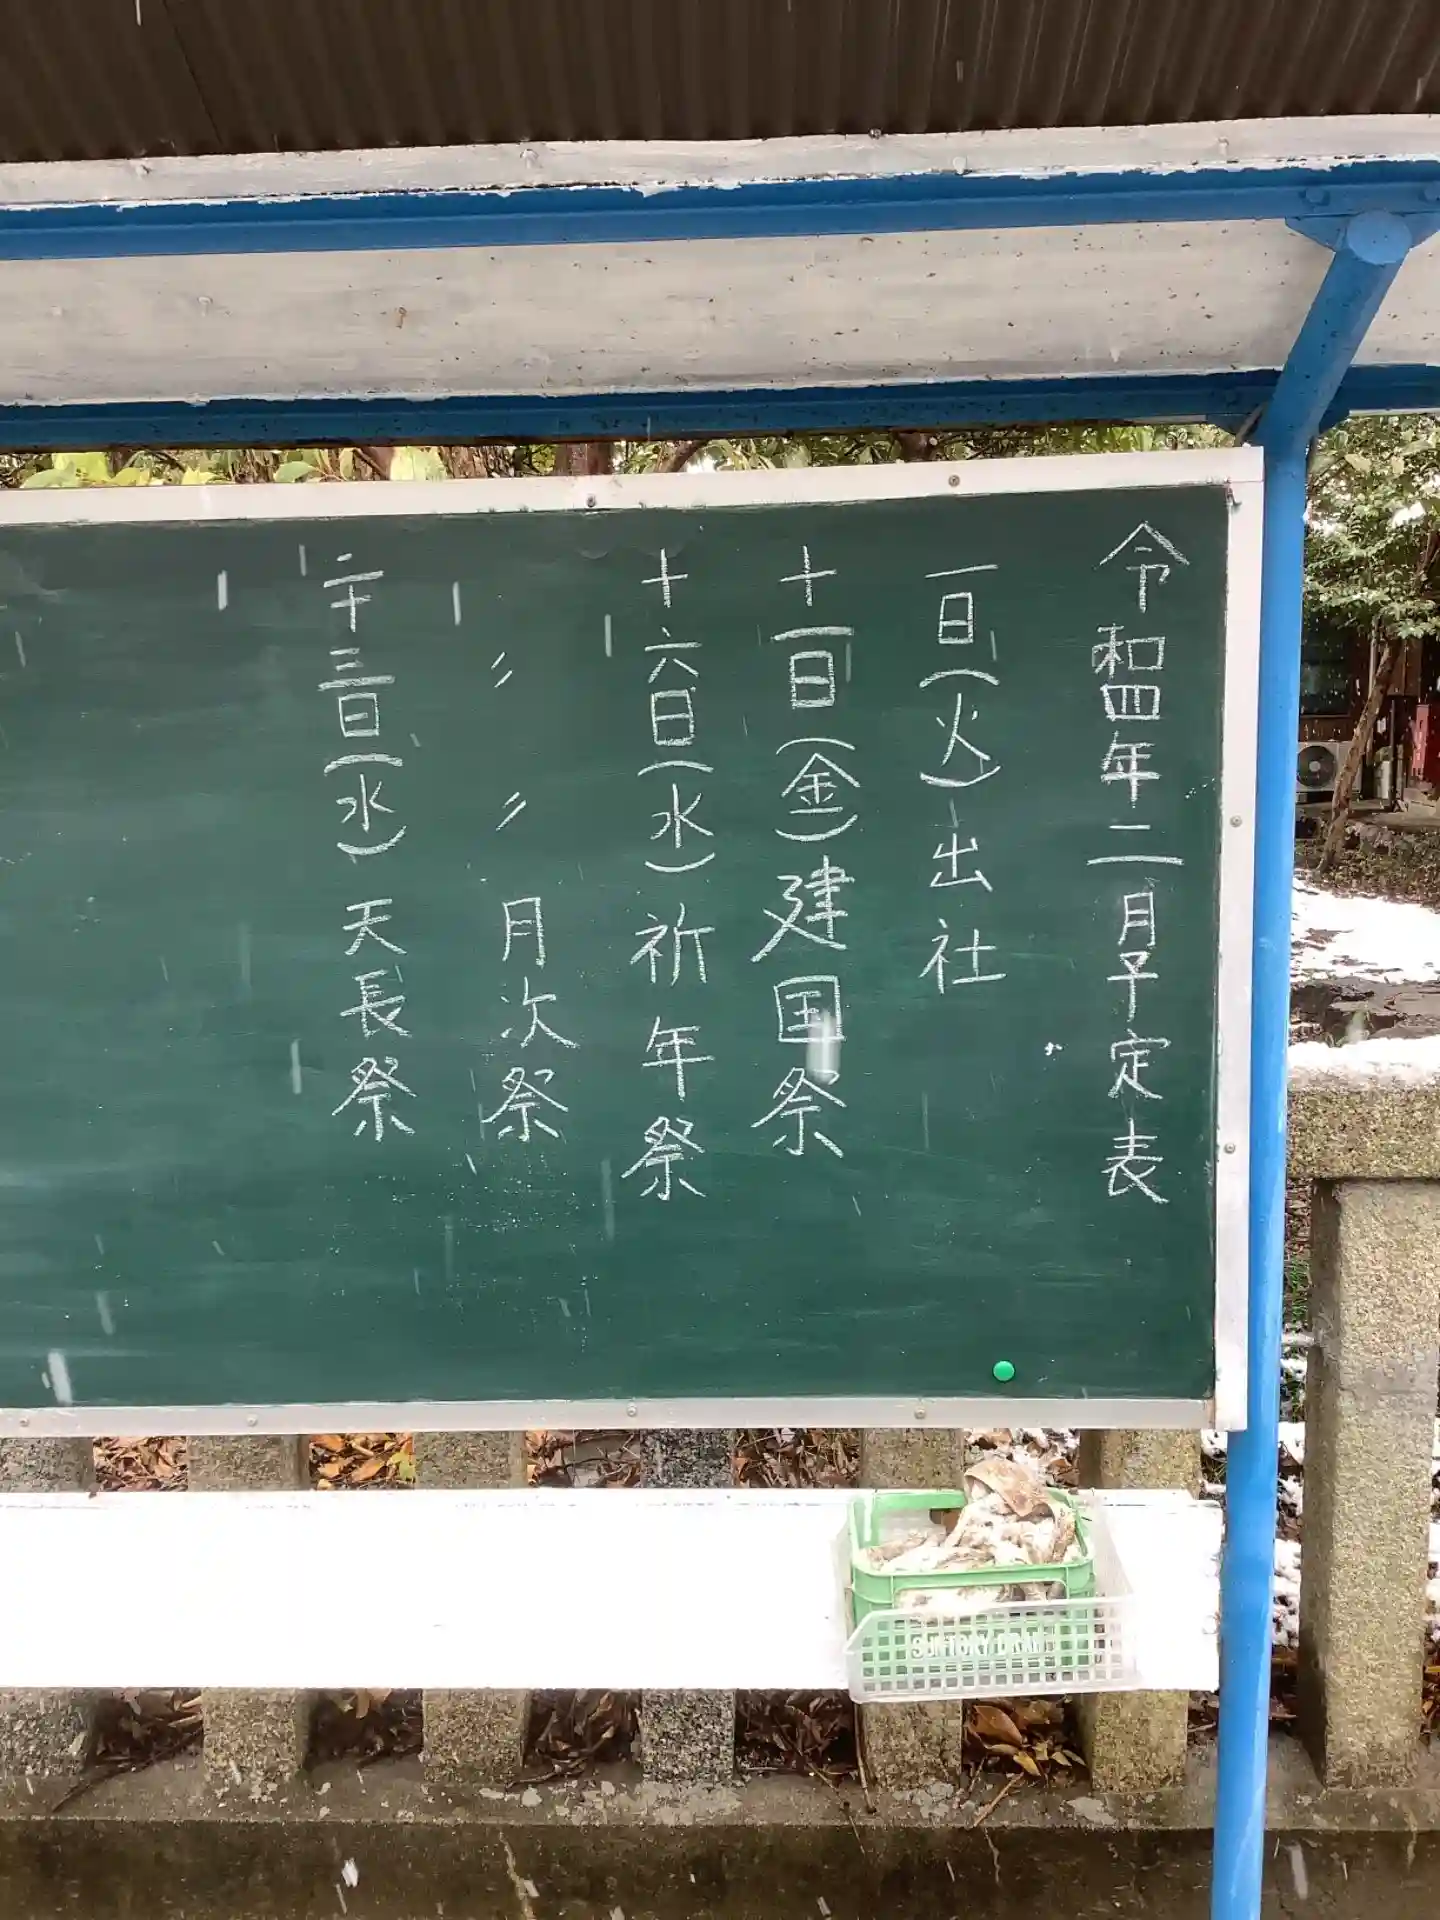 令和四年二月予定表
一日(火)出社
十一日(金)建国祭
十六日(水)祈年祭
〃 〃 月次祭
二十三日(水)天長祭
SUNTORY DRAFT